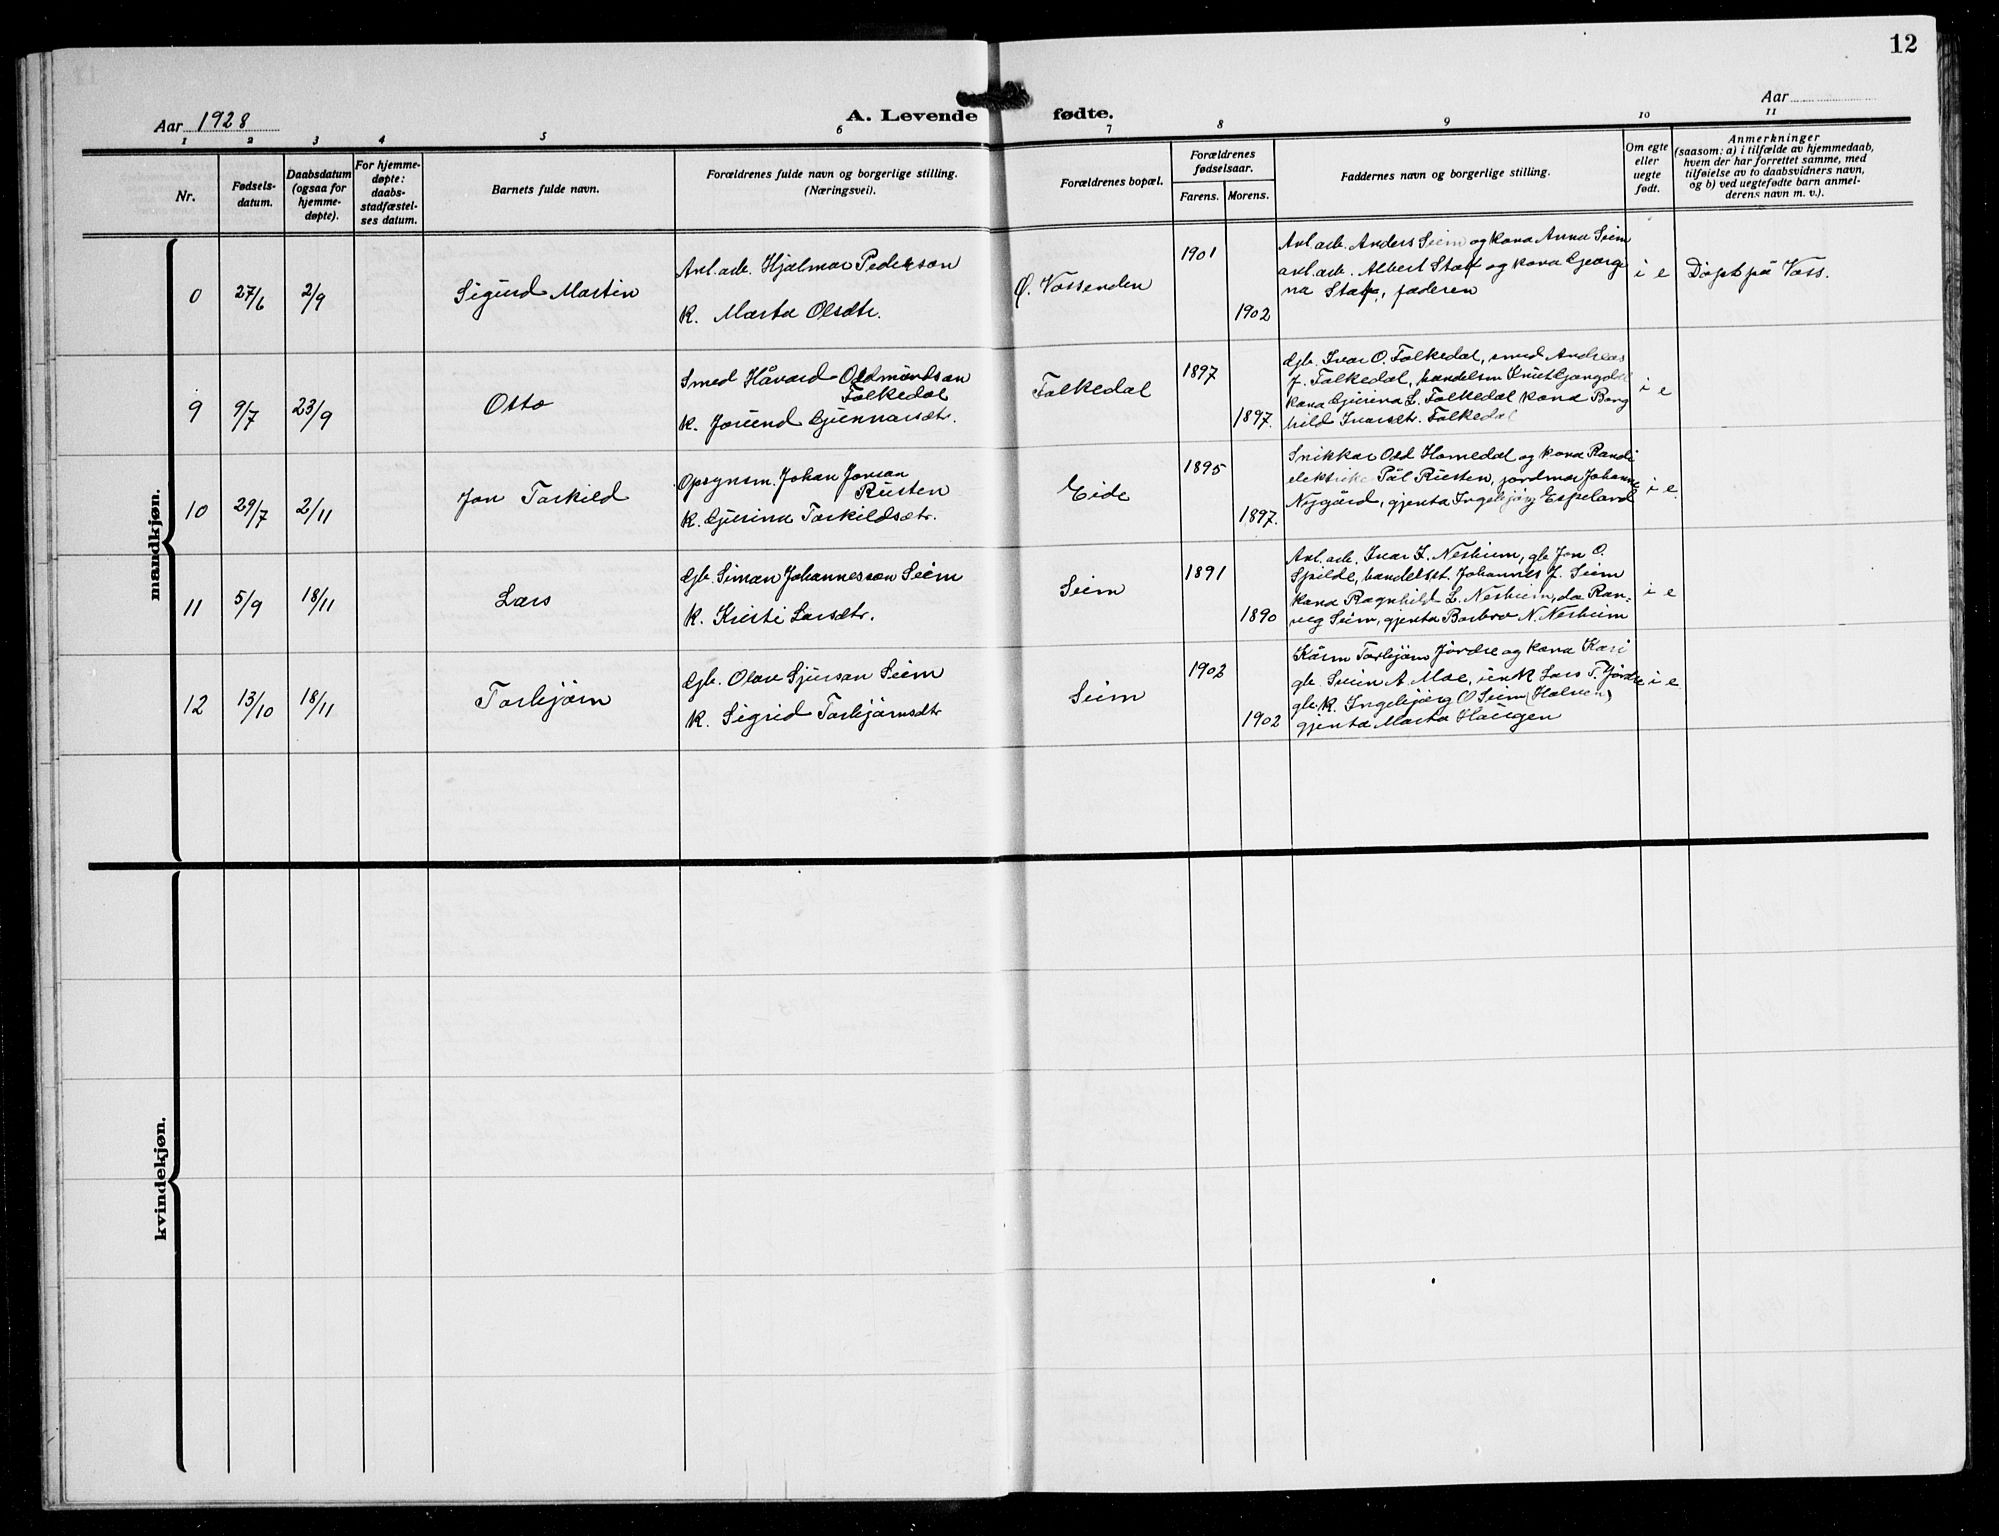 12
Aar 1928
A. Levende fødte.
Aar
1 2 3 4 5 6 7 8 9 10 11
Nr.
Fødsels-
datum.
Daabsdatum
(ogsaa for
hjemme-
døpte).
For hjemme-
døpte:
daabs-
stadfæstel-
ses datum.
Barnets fulde navn.
Forældrenes fulde navn og borgerlige stilling.
(Næringsvei).
Forældrenes bopæl.
Forældrenes
fødselsaar.
Farens. Morens.
Faddernes navn og borgerlige stilling.
Om egte
eller
uegte
født.
Anmerkninger
(saasom: a) i tilfælde av hjemmedaab,
hvem der har forrettet samme, med
tilføielse av to daabsvidners navn,
og b) ved uegtefødte barn anmel-
derens navn m. v.).
mandkjøn.
0 27/6 2/9 Sigurd Martin
Anl. arb. Hjalmar Pederson
K. Marta Olsdtr.
Ø. Vassenden
1901
1902
Anl. arb. Anders Seim og kona Anna Seim
anl. arb. Albert Stai og kona Georgi
na, faderen
i e
Døpt på Voss.
9 9/7 23/9 Otto
Smed Håvard Oddmundson
Folkedal
K. Jorund Gunnarsdtr.
Folkedal
1897
1897.
gb. Ivar O. Folkedal, smed Andreas
J. Folkedal, handelsm Knut
kona Gurina L. Folkedal kona Borg
hild Ivarsdtr. Folkedal
i e
10 29/7 2/11 Jon Torkild
Opsynsm. Johan Jonson
Rusten
K. Gurina Torkildsdtr.
Eide
1895
1897.
Snikkar Odd Homedal og kona Randi
elektrike Pål Rusten, jordmor Johanne
Nygård, gjenta Ingebjørg Espeland
i e.
11 5/9 18/11 Lars
gb. Simon Johannesson Seim
K. Kristi Larsdtr.
Seim
1891
1890
Anl. arb. Ivar L. Nesheim, gb. Jon O.
Spilde, handelsst. Johannes J. Seim
kona Ragnhild L. Nesheim, do Ran-
veig Seim, gjenta Barbro N. Nesheim
i e
12 13/10 18/11 Torbjørn
gb. Olav Sjurson Seim
K. Sigrid Torbjørnsdtr
Seim
1902
1902
Kårm Torbjørn Jordre og kona Kari
gb. Svein A. Moe, unk Lars T. Jordre
gb. k. Ingebjørg O Seim (Halven)
gjenta Marta Haugen
i e
kvindekjøn.